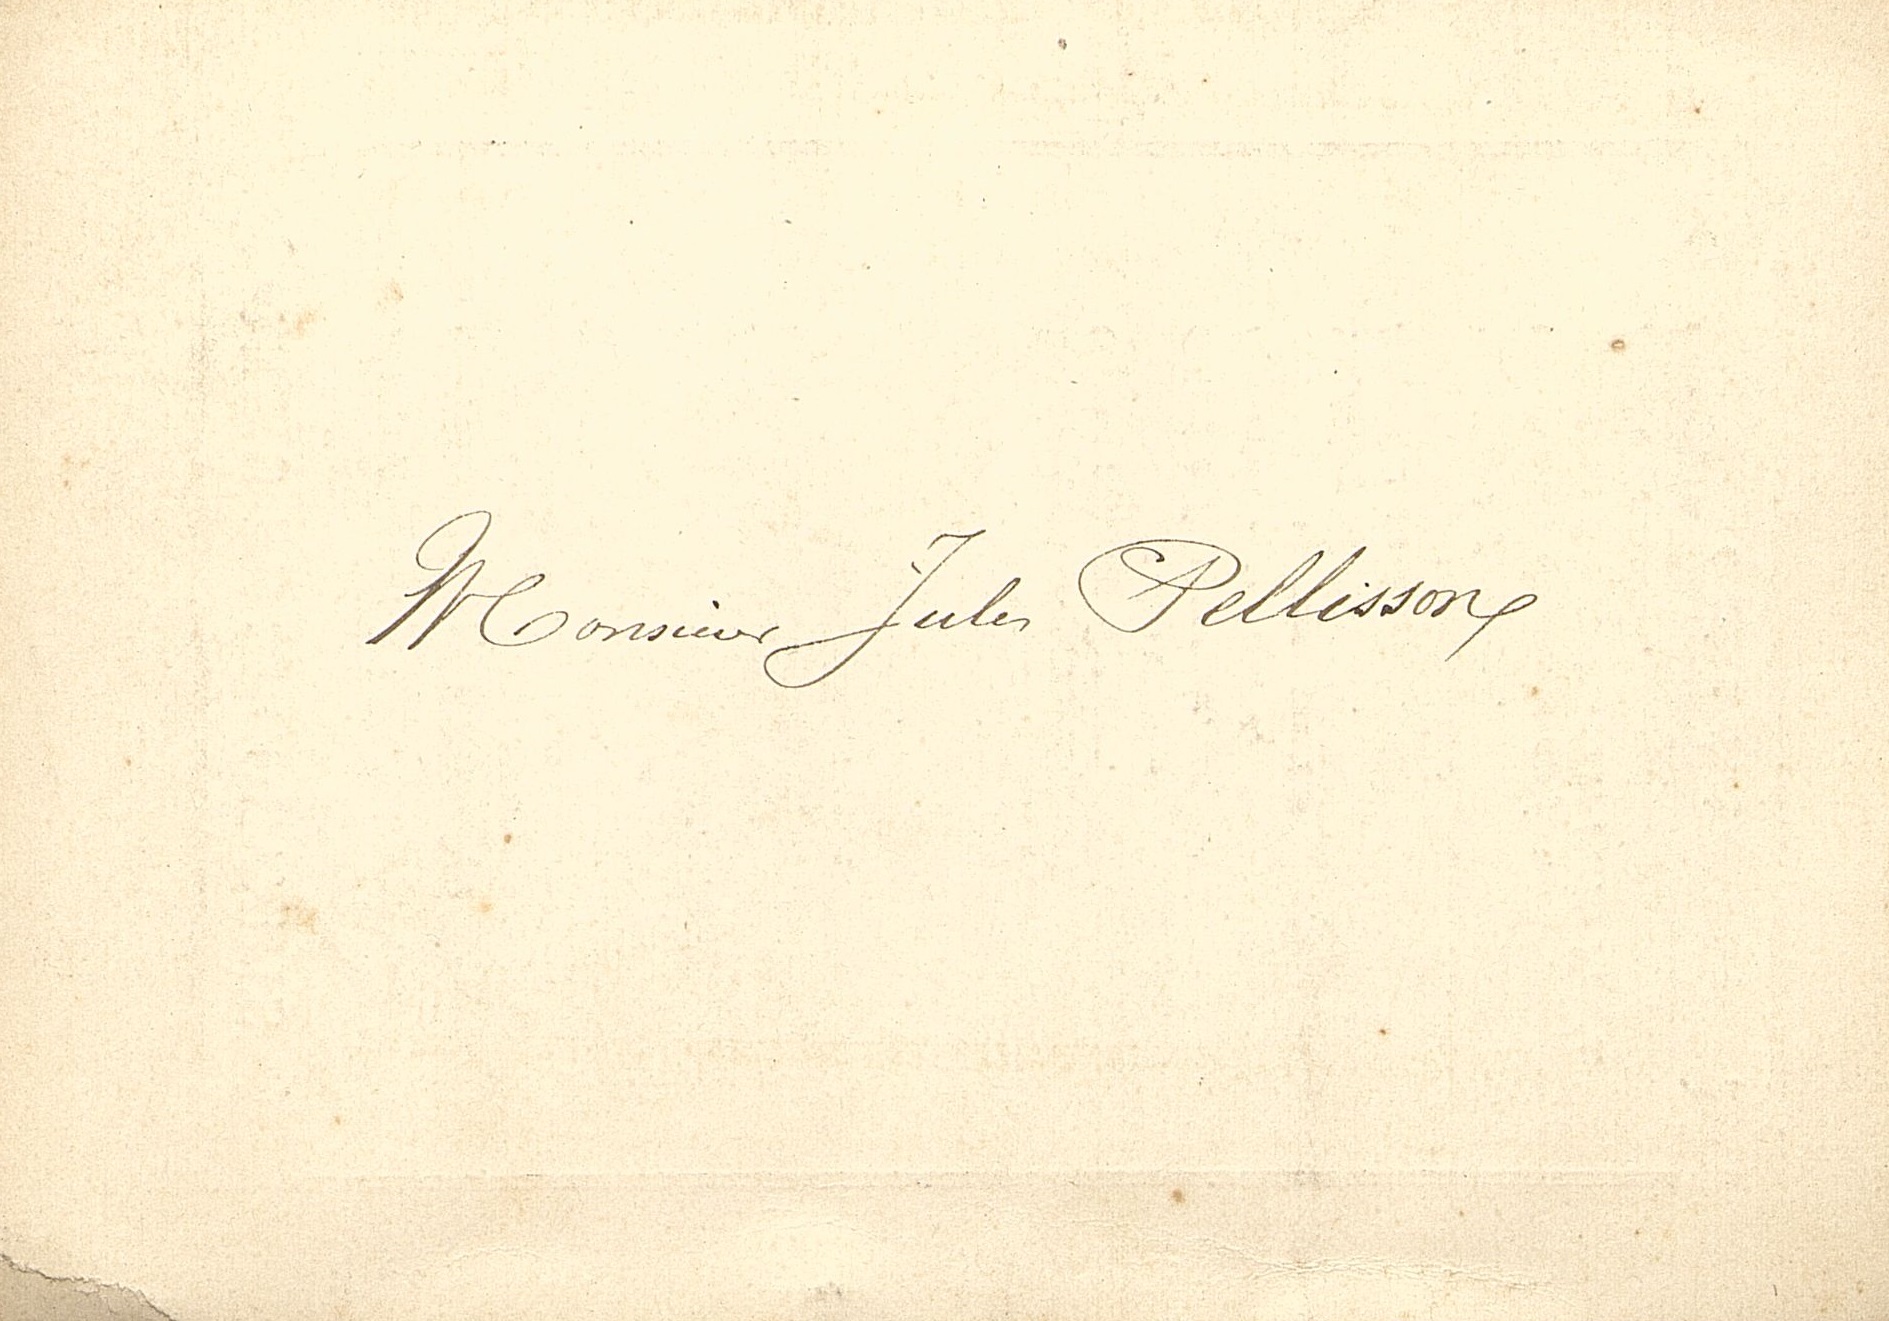 Monsieur Jules Pellisson